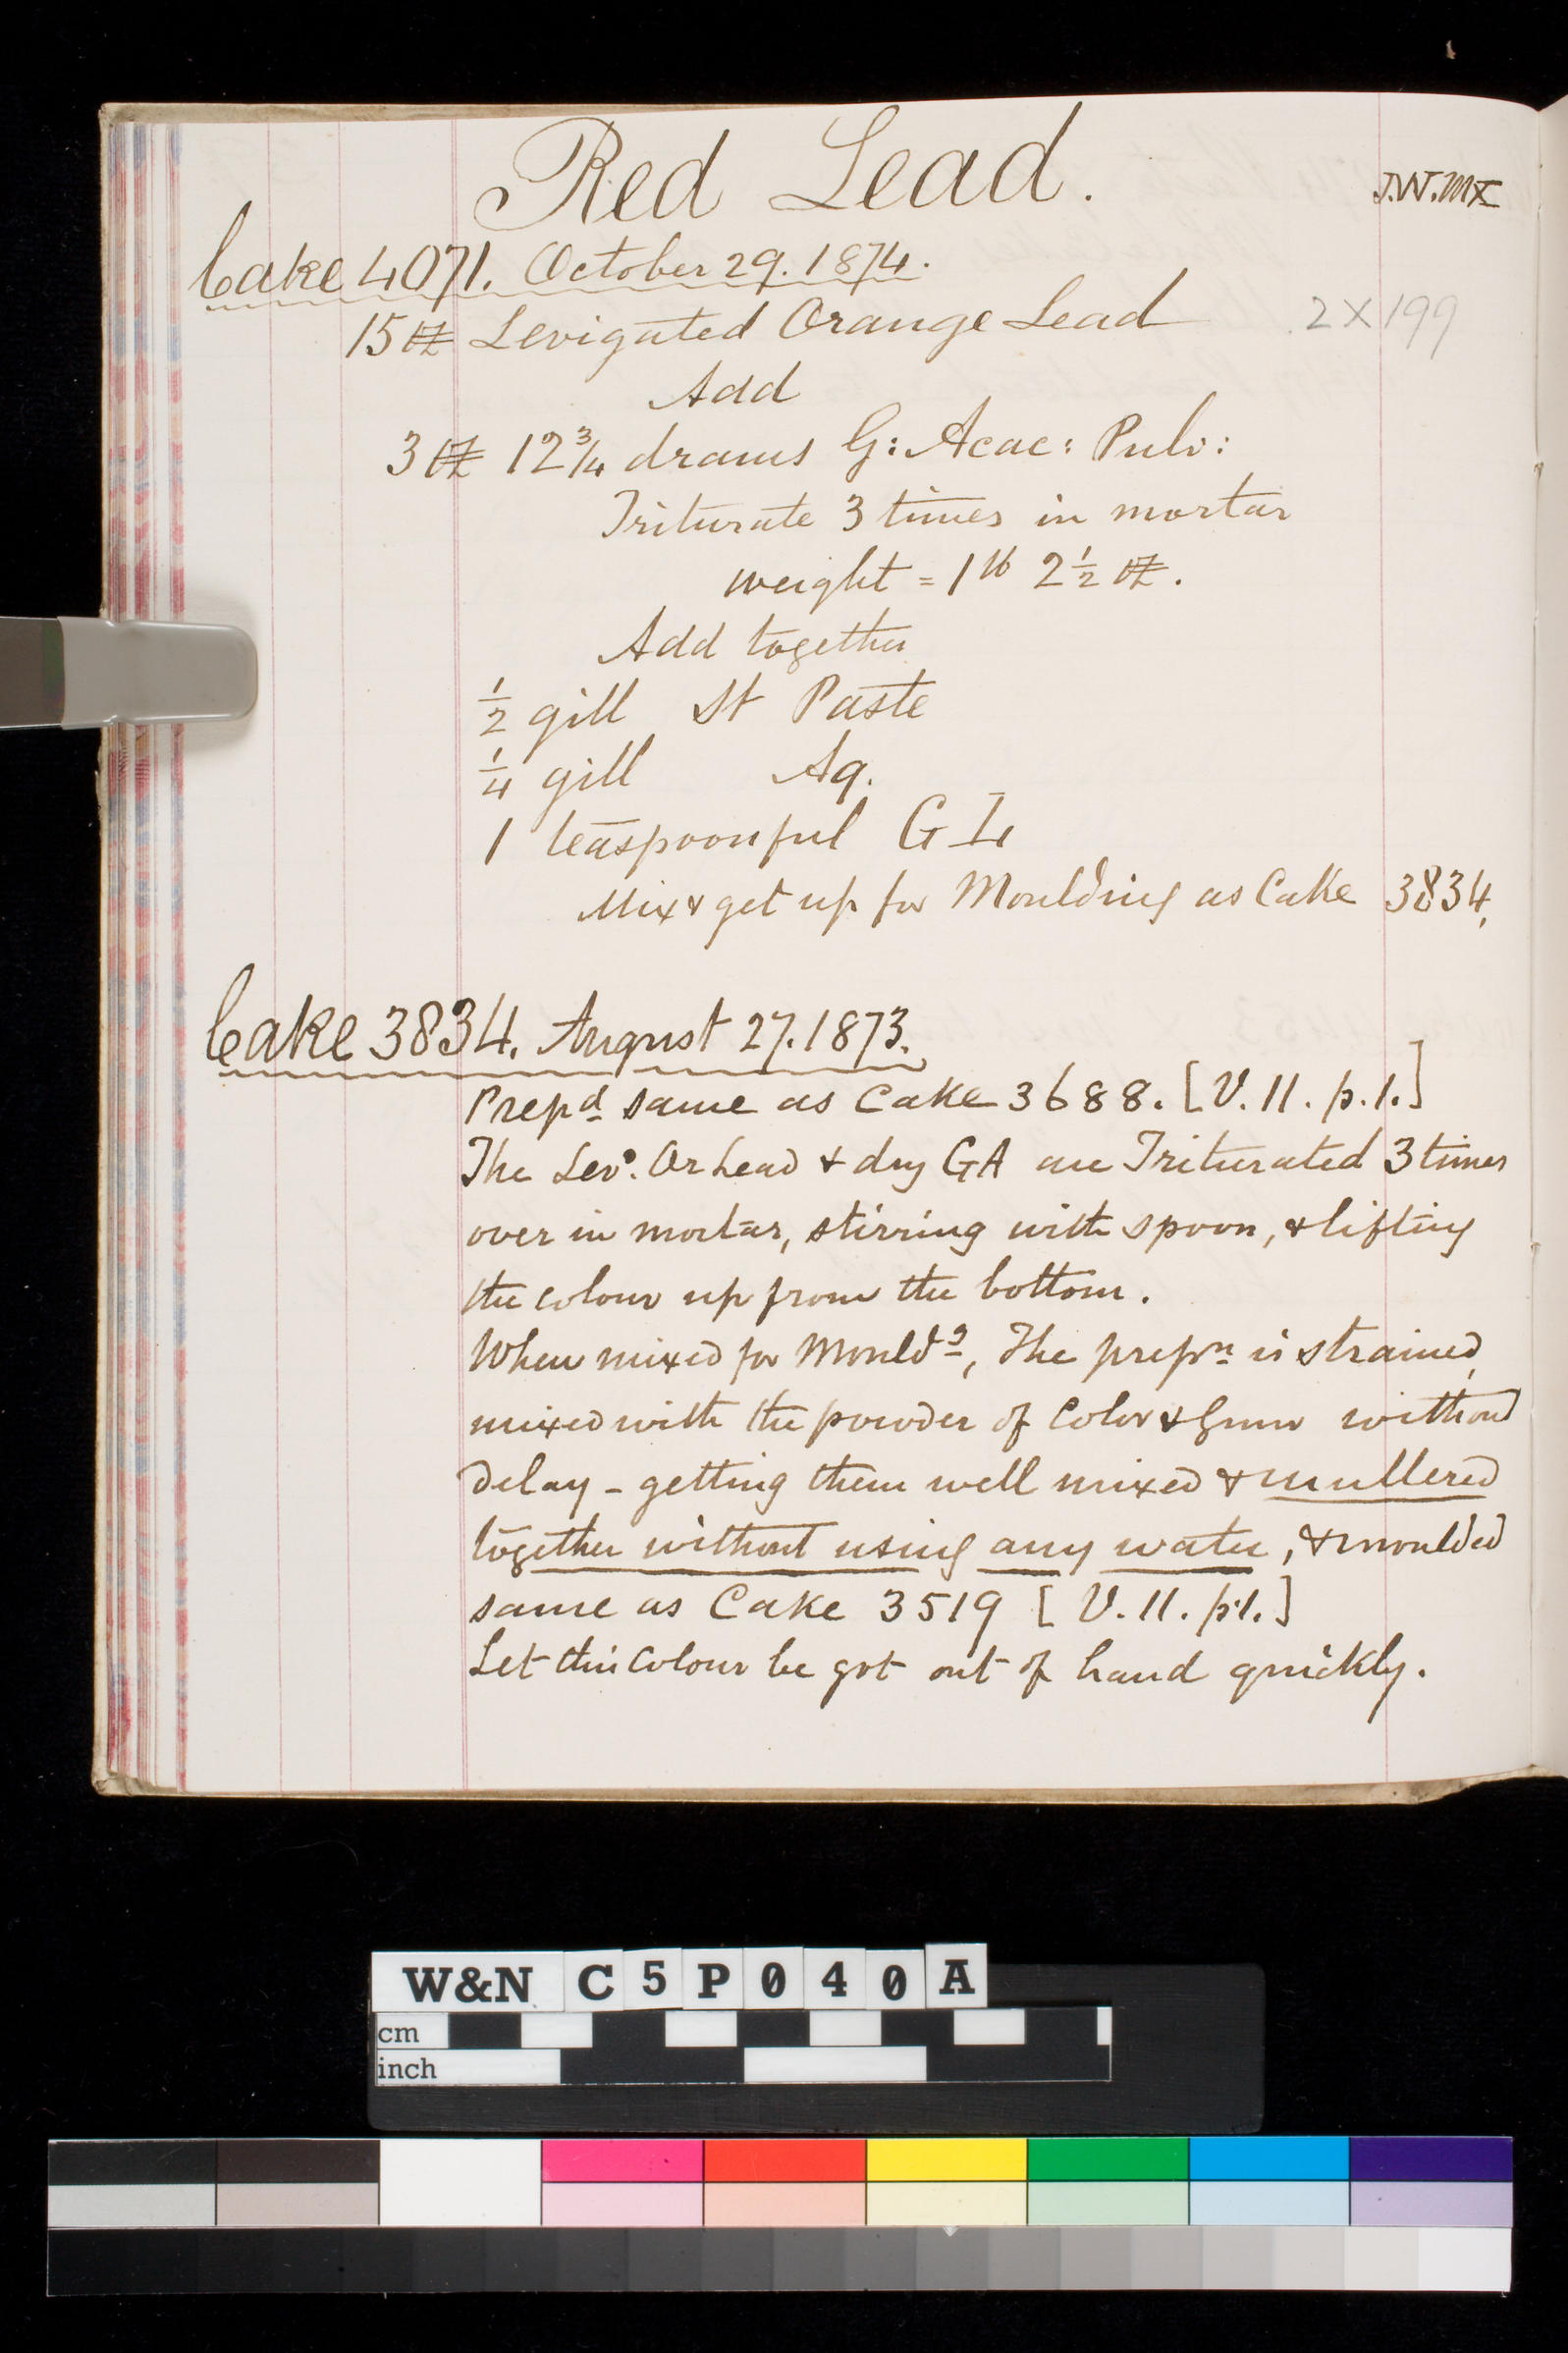 Red Lead.
J.W.MX
Cake 4071. October 29. 1874.
15 oz Levigated Orange Lead
2 X 199
Add
3 oz 12 3/4 drams G: Acac: Pulv:
Triturate 3 times in mortar
weight = 1 lb 2 1/2 oz.
Add together
1/2 gill St Paste
1/4 gill Aq.
1 teaspoonful G
Mix & get up for Moulding as Cake 3834.
Cake 3834. August 27. 1873.
Prepd same as Cake 3688. [V. 11. p. 1.]
The Levd. Or Lead & dry GA are Triturated 3 times
over in mortar, stirring with spoon, & lifting
the colour up from the bottom.
When mixed for Mouldg, The prepn is strained,
mixed with the powder of Color & Gum without
delay - getting them well mixed & mullered
together without using any water, & moulded
same as Cake 3519 [V. 11. p. 1.]
Let this Colour be got out of hand quickly.
W&N C5P040A
cm
inch